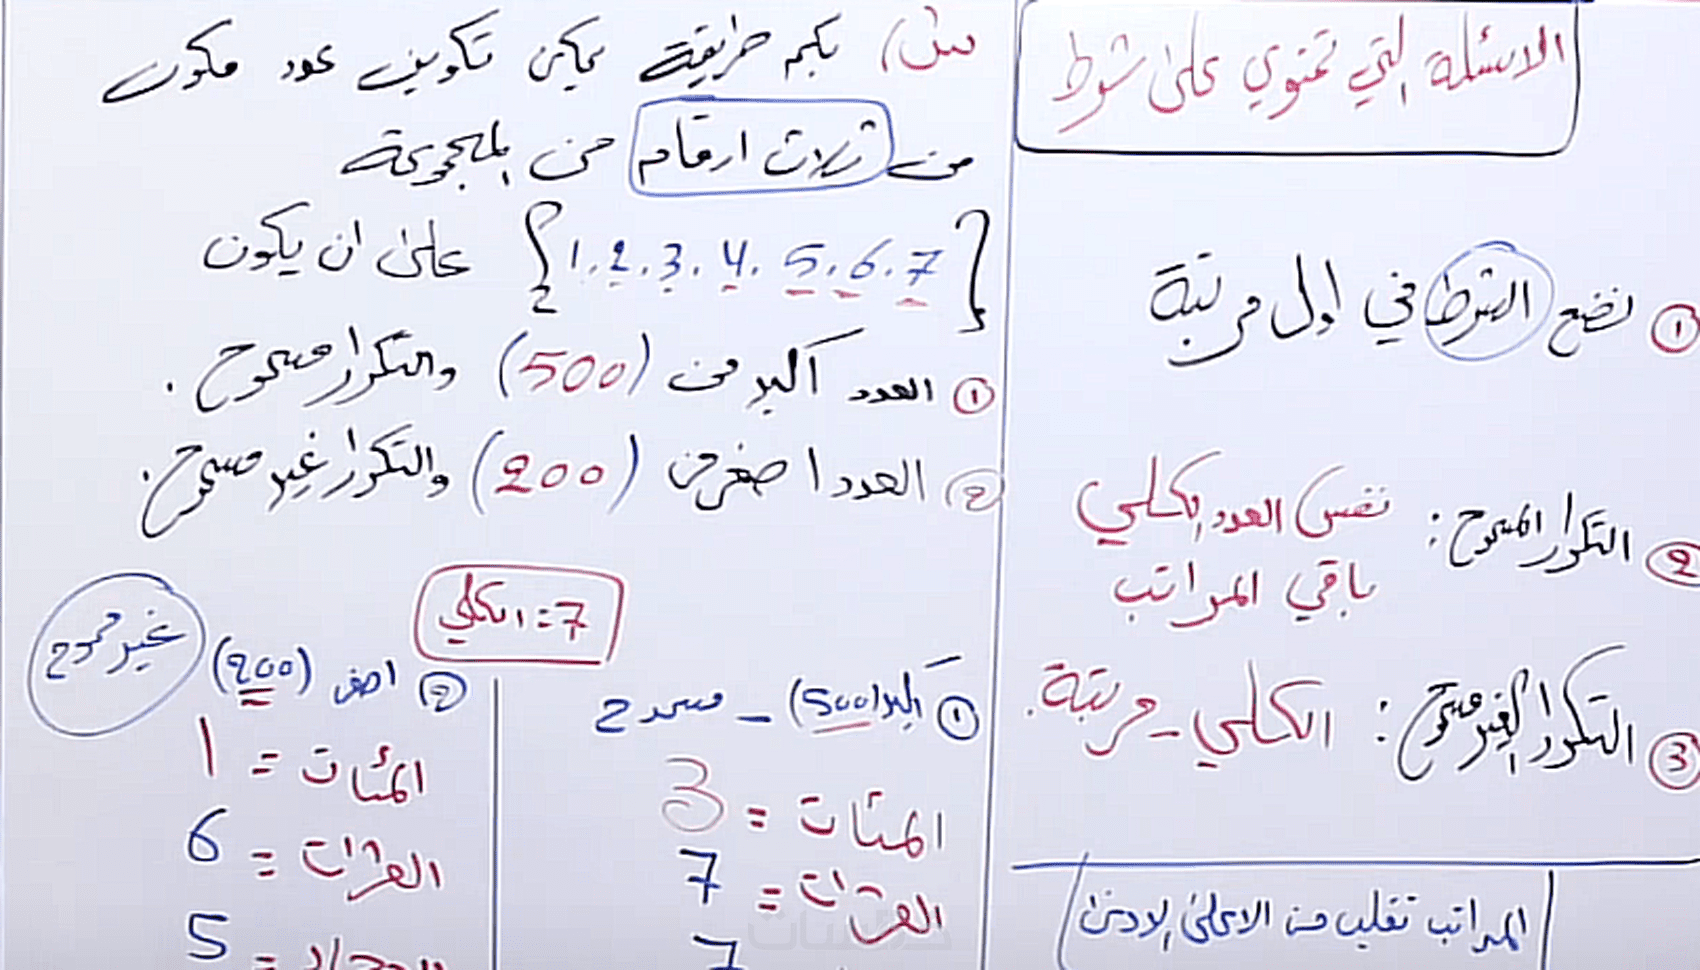 الاسئلة التي تحتوي على شرط
① نضع الشرط في اول مرتبة
② التكرار المسموح : نفس العدد الكلي
باقي المراتب
③ التكرار الغير مسموح : الكلي - مرتبة .
المراتب تقلب من الاعلى لادنى
س) بكم طريقة يمكن تكوين عدد مكون
من ثلاث ارقام من المجموعة
{1.2.3.4.5.6.7} على ان يكون
① العدد اكبر من (500) والتكرار مسموح .
② العدد اصغر من (200) والتكرار غير مسموح .
7 = الكلي
① اكبر (500) - مسموح
المئات = 3
العشرات = 7
7
② اصغر (200) غير مسموح
المئات = 1
العشرات = 6
الاحاد = 5